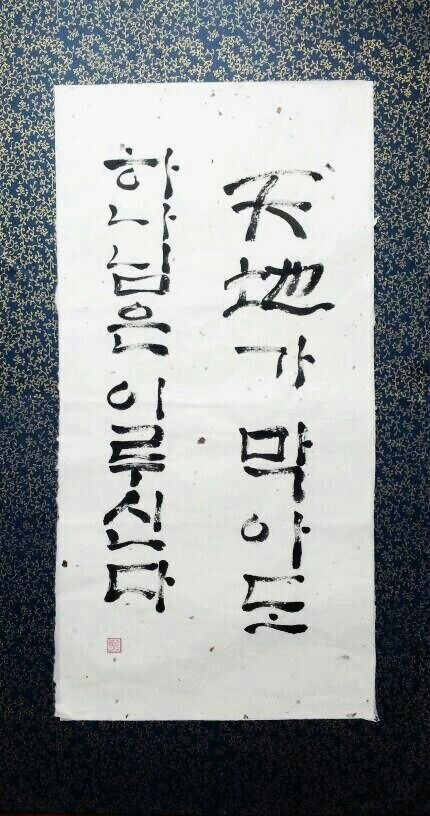 天地가 막아도
하나님은 이루신다